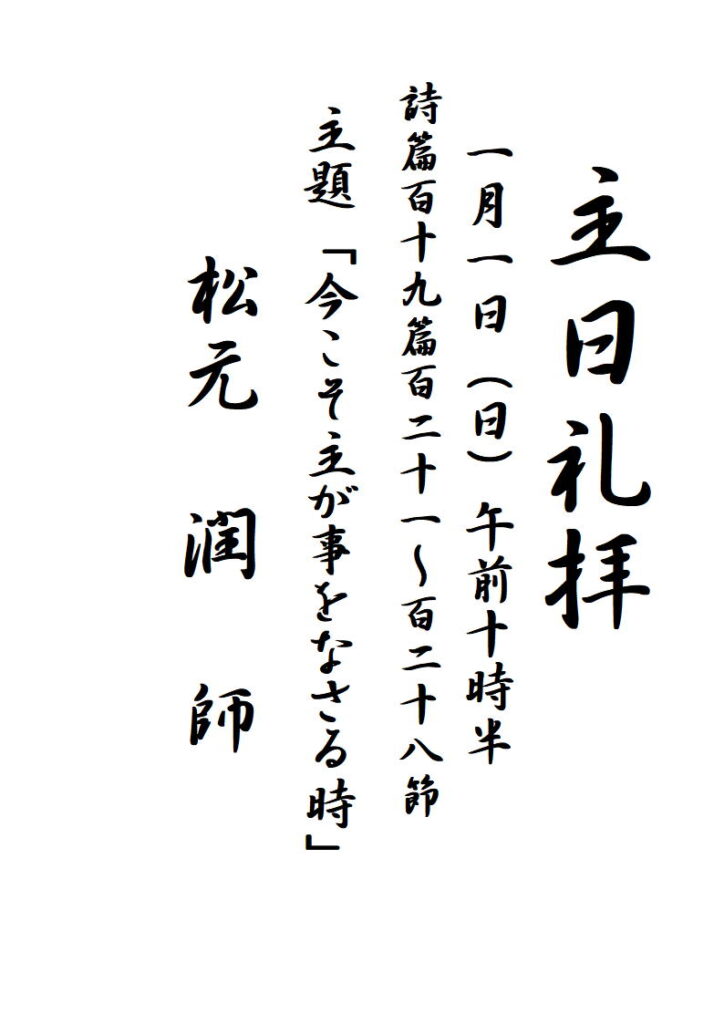 主日礼拝
一月一日（日）午前十時半
詩篇百十九篇百二十一～百二十八節
主題「今こそ主が事をなさる時」
松元　潤　師